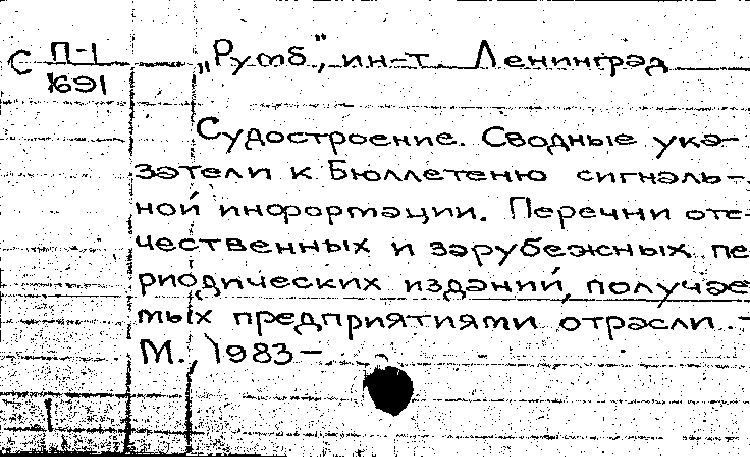 С П-1 „Румб", ин-т. Ленинград
1691
Судостроение. Сводные ука-
затели к Бюллетеню сигналь-
ной информации. Перечни оте-
чественных и зарубежных пе
риодических изданий, получае
мых предприятиями отрасли. -
М., 1983 -